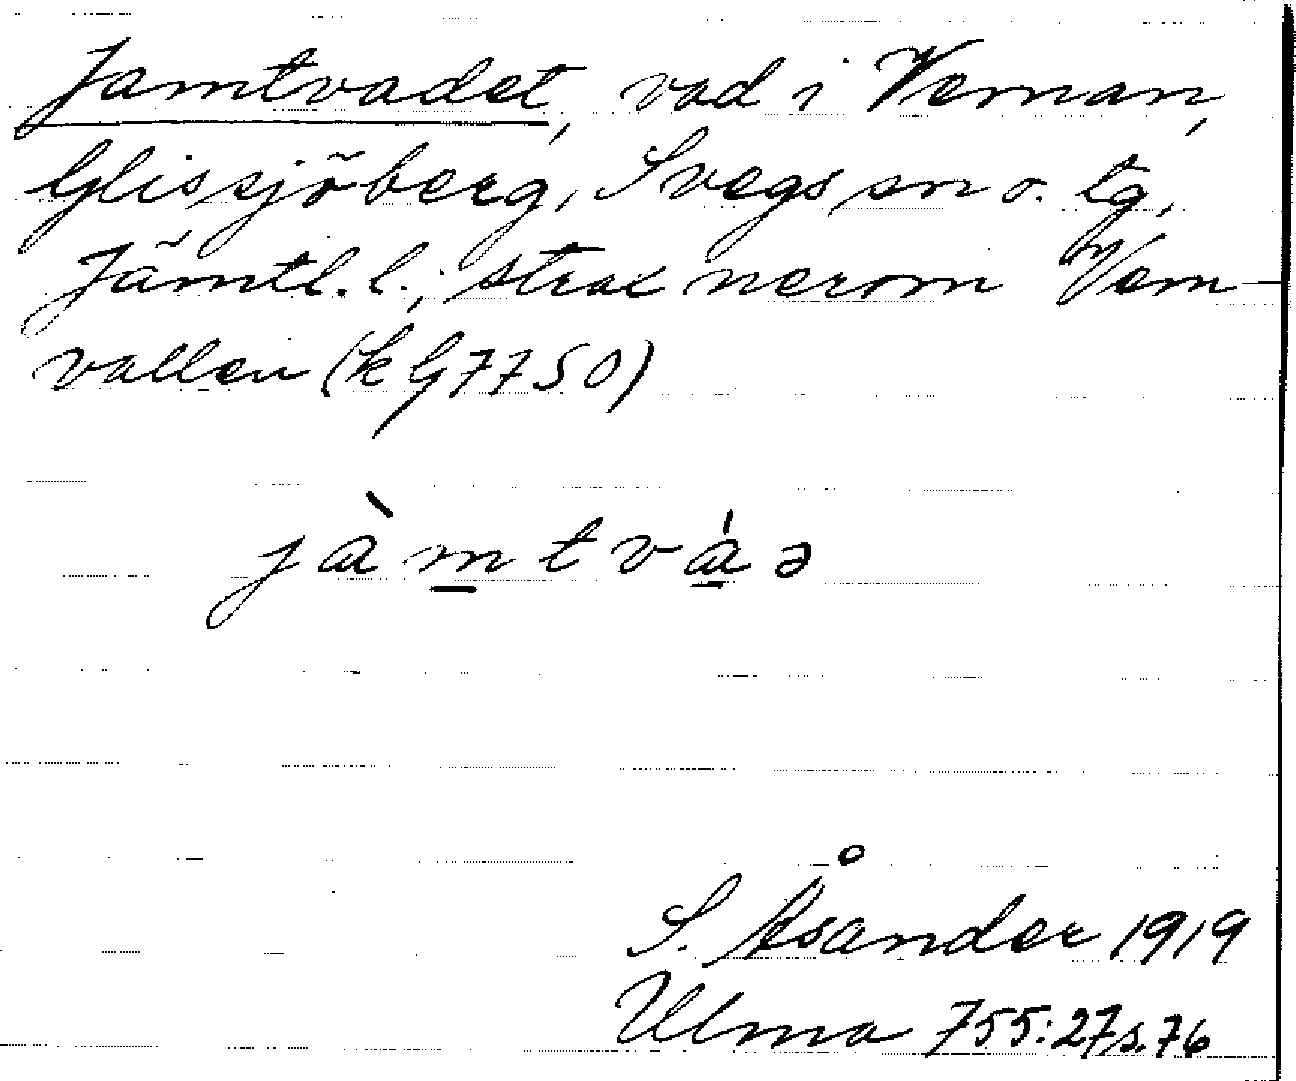 Jamtvadet, vad i Veman,
Glissjöberg, Svegs sn o. tg,
Jämtl. l.; strax nerom Vem-
vallen (k G7750)
jàmtváə
S. Åsander 1919
Ulma 755:27 s. 76